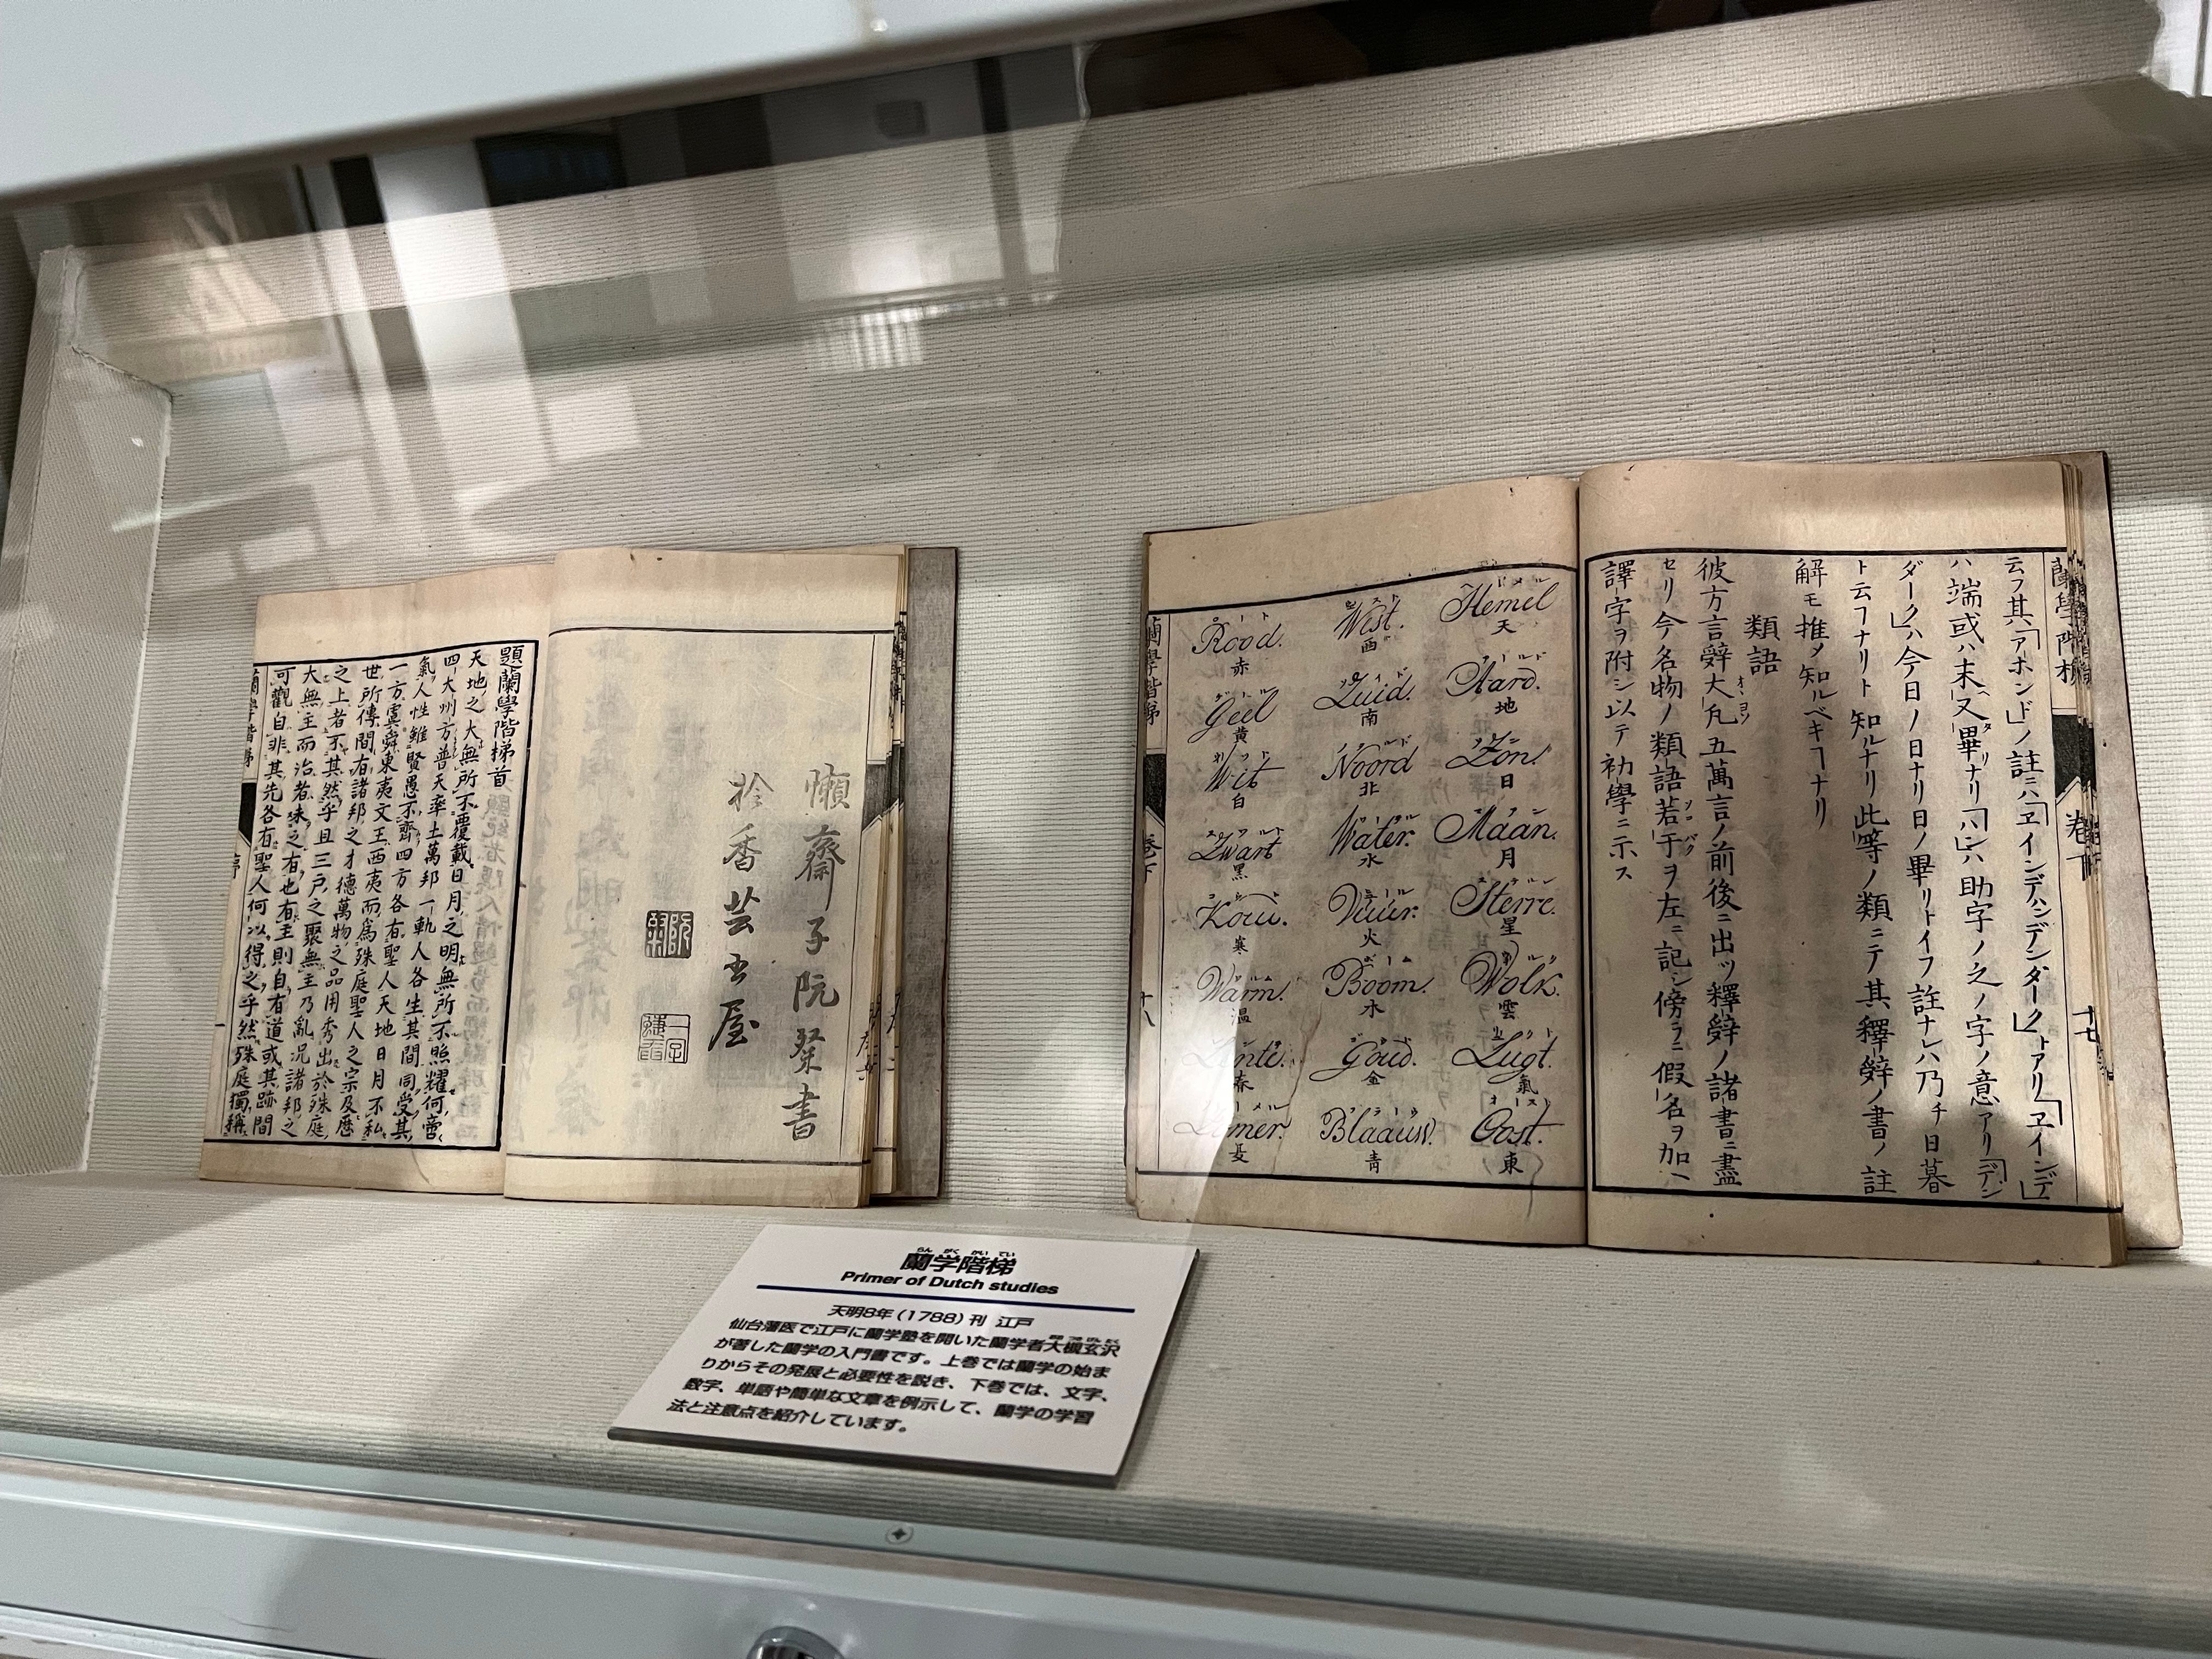 題蘭學階梯首
天地之大無所不覆載日月之明無所不照燿何啻
四大州方普天率土萬邦一軌人各生其間同受其
氣人性雖賢愚不齊四方各有聖人天地日月不私
一方虞舜東夷文王西夷而爲殊庭聖人之宗及歷
世所傳間有諸邦之才德萬物之品用秀出於殊庭
之上者不其然乎且三戸之聚無主乃亂況諸邦之
大無主而治者未之有也有主則自有道或其跡間
可觀自非其先各有聖人何以得之乎然殊庭獨稱
懶齋子阮桀書
於香芸書屋
蘭學階梯
卷下
十七
云フ其「アホンド」ノ註ニハ「ヱインデハンデンダーク」トアリ「ヱインデ」
ハ端或ハ末又畢ナリ「ハン」ハ助字ノ之ノ字ノ意アリ「デン
ダーク」ハ今日ノ日ナリ日ノ畢リトイフ註ナレハ乃チ日暮
ト云フナリト知ルナリ此等ノ類ニテ其釋辭ノ書ノ註
解モ推メ知ルベキヿナリ
類語
彼方言辭大凡五萬言ノ前後ニ出ツ釋辭ノ諸書ニ盡
セリ今名物ノ類語若干ヲ左ニ記シ傍ラニ假名ヲ加ヘ
譯字ヲ附シ以テ初學ニ示ス
Hemel
天
Aard.
地
Zon.
日
Maan.
月
Sterre.
星
Wolk.
雲
Lugt.
氣
Oost.
東
West.
西
Zuid.
南
Noord
北
Water.
水
Vuur.
火
Boom.
木
Goud.
金
Blaauw.
靑
Rood.
赤
Geel
黄
Wit
白
Zwart
黑
Kou.
寒
Warm.
温
Lente.
春
Zomer.
夏
蘭學階梯
卷下
十八
らんがくかいてい
蘭学階梯
Primer of Dutch studies
天明8年(1788)刊 江戸
仙台藩医で江戸に蘭学塾を開いた蘭学者大槻玄沢
が著した蘭学の入門書です。上巻では蘭学の始ま
りからその発展と必要性を説き、下巻では、文字、
数字、単語や簡単な文章を例示して、蘭学の学習
法と注意点を紹介しています。